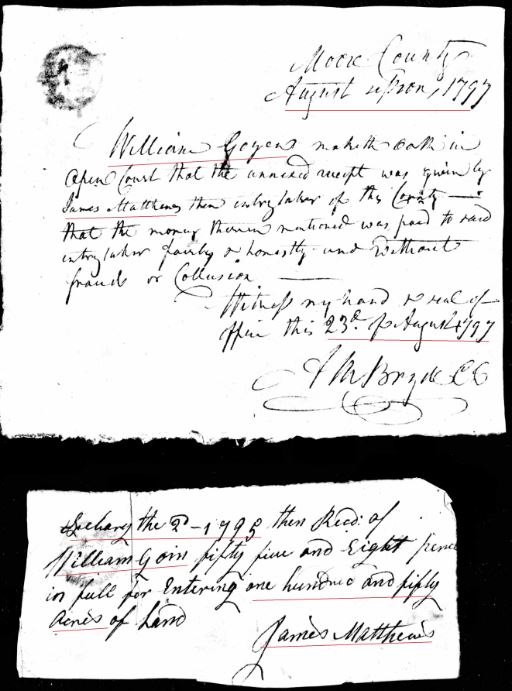 Moore County
August session, 1797
William Goyens maketh oath in
open Court that the annexed receipt was given by
James Matthews then entry taker of this County
that the money therein mentioned was paid to said
entry taker fairly & honestly and without
fraude or Collusion
Witness my hand & seal of
office this 23d of August 1797
CC
the 2d - 1795 then Recd. of
William Goin fifty five and Eight pence
in full for Entering one hundred and fifty
Acres of Land
James Matthews